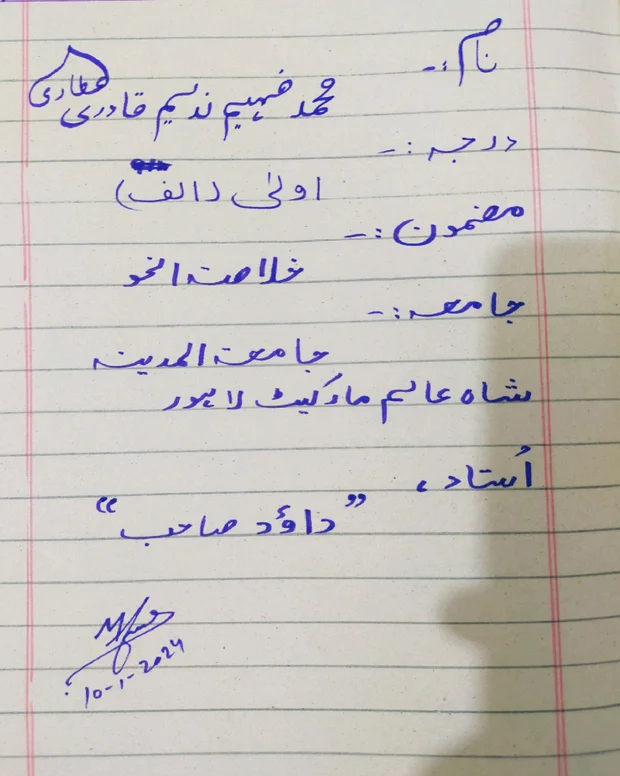 نام :-
محمد فہیم ندیم قادری عطاری
درجہ :-
اولیٰ (الف)
مضمون :-
خلاصۃ النحو
جامعہ :-
جامعۃ المدینہ
شاہ عالم مارکیٹ لاہور
اُستاد ،
”داؤد صاحب“
10-1-2024